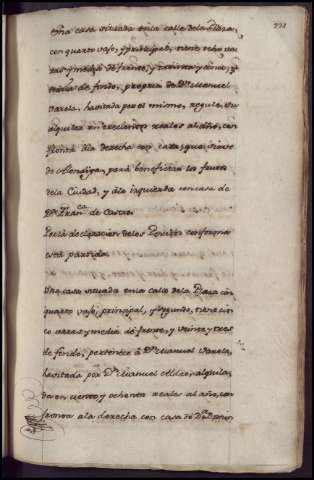 Una casa situada en la calle de la Plaza,
con quarto vajo, y principal, tiene ocho va
ras y media de frente, y treinta y cinco, y
media de fondo, propria de Dn. Manuel
Varela, havitada por el mismo, regulè su
alquiler en trescientos reales al año, con
fronta â la derecha con casa que sirve
de Alondiga, para beneficiar los frutos
de la Ciudad, y â la izquierda con casa de
Dn. Franco. de Castro.
Por la declarazion de los Peritos conforma
esta partida.
Una casa situada en la calle de la Plaza con
quarto vajo, principal, y segundo, tiene cin
co varas y media de frente, y veinte y tres
de fondo, pertenece â Dn. Manuel Varela,
havitada por Dn. Manuel alquila
da en ciento y ochenta reales al año, con
fronta a la derecha con casa de Dn.